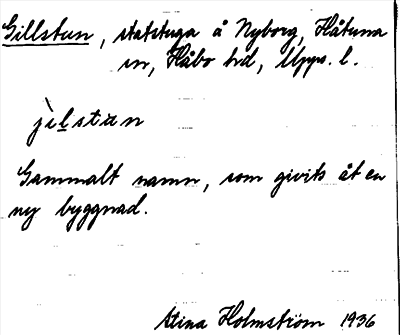 Gillstun, statstuga å Nyborg, Håtuna
sn, Håbo hd, Upps. l.
jìlstùn
Gammalt namn, som givits åt en
ny byggnad.
Stina Holmström 1936